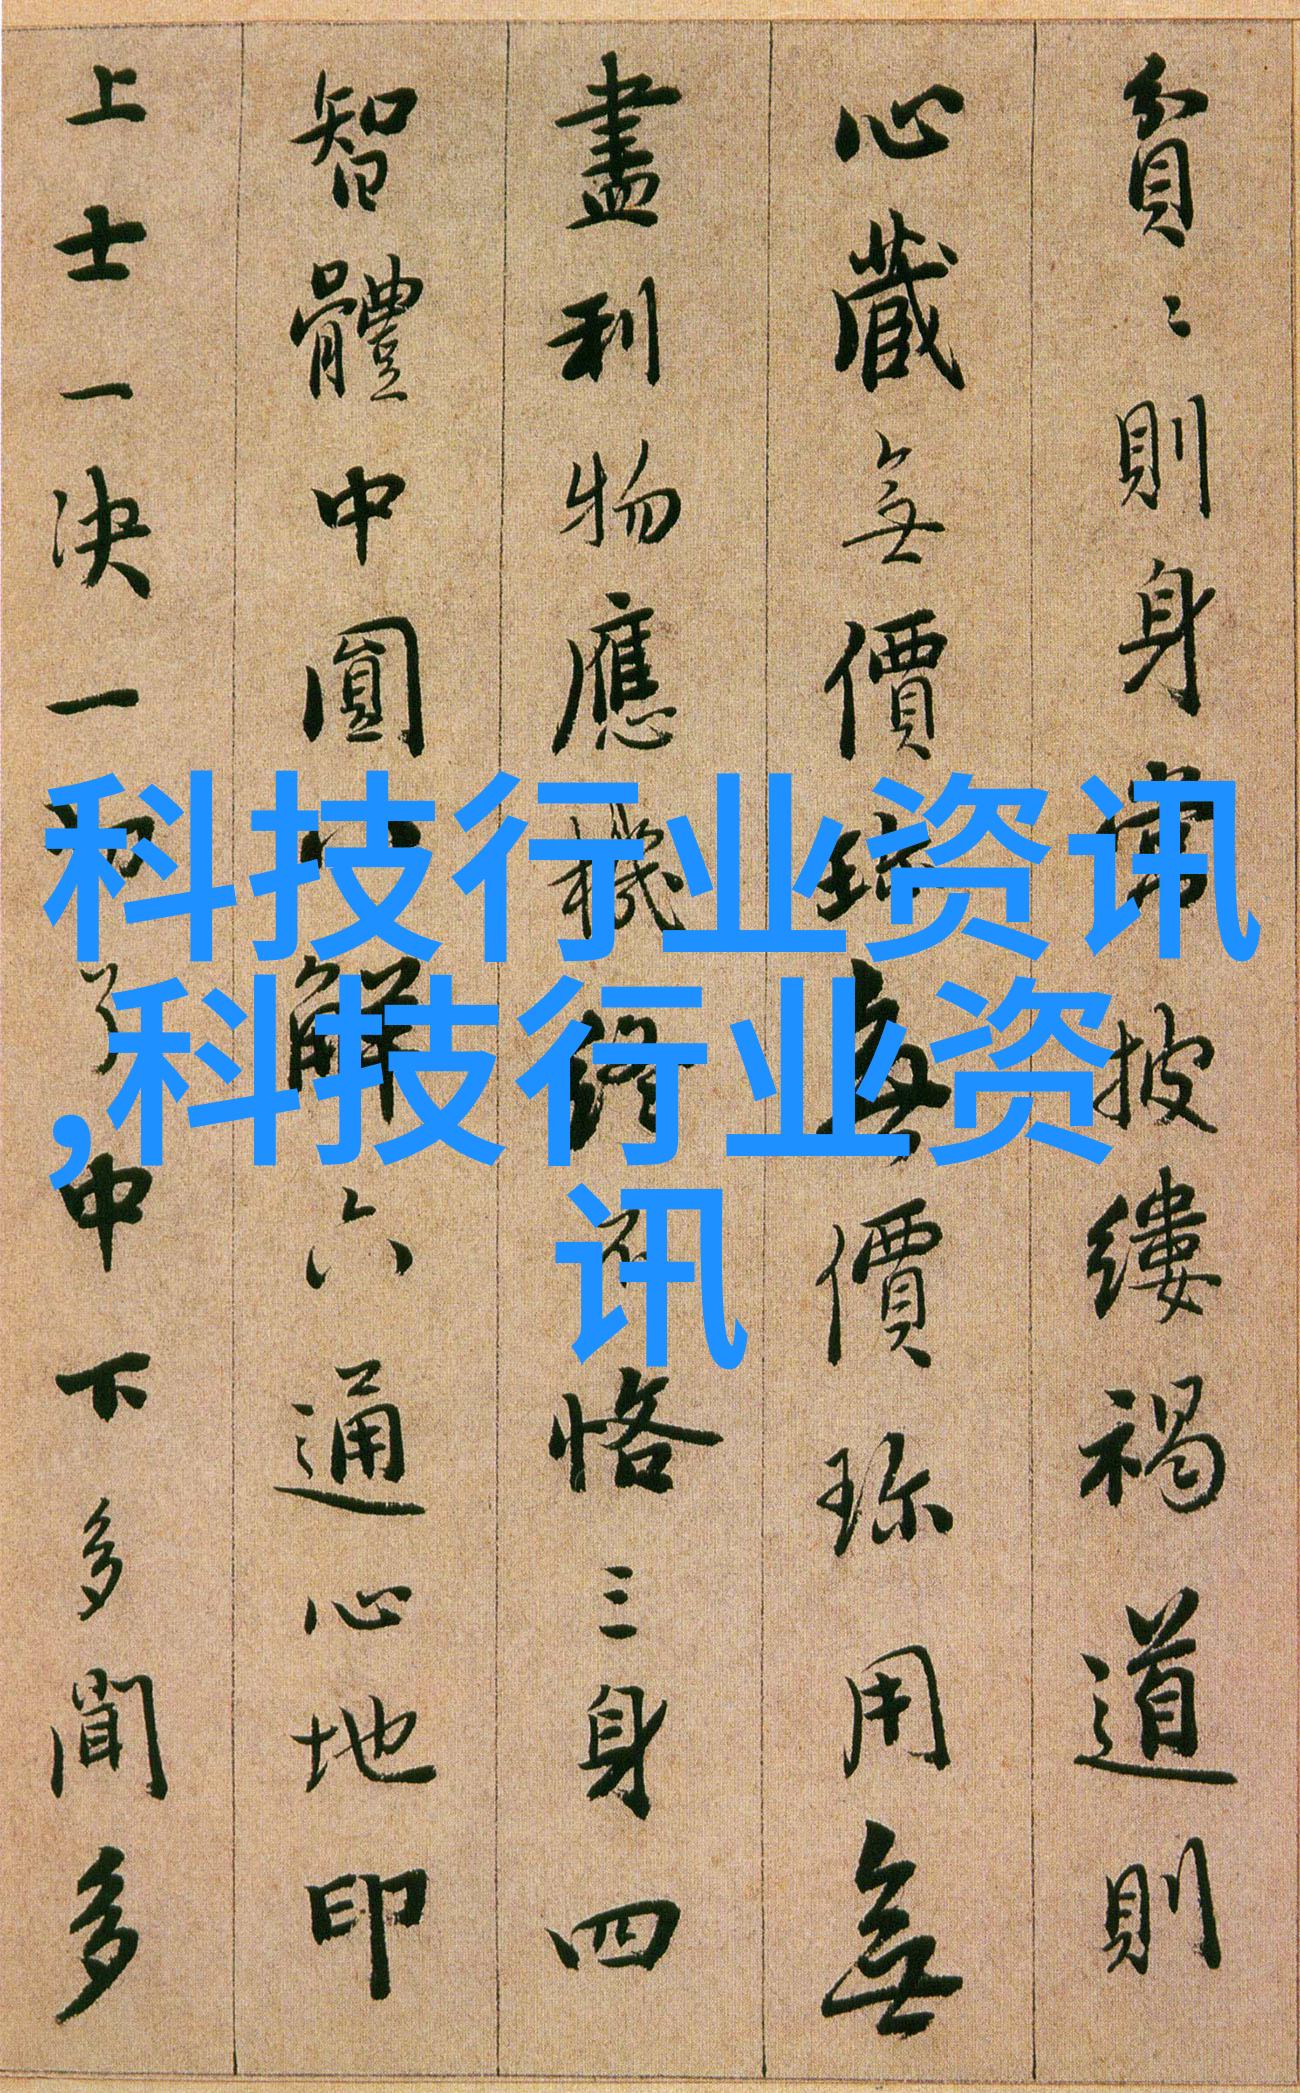 貧〻則身常披縷褐道則
心藏無價珎無價珎用無
盡利物應機終不恪三身四
智體中圓八解六通心地印
上士一决一切了中下多聞多
科技行业资讯
,科技行业资
讯